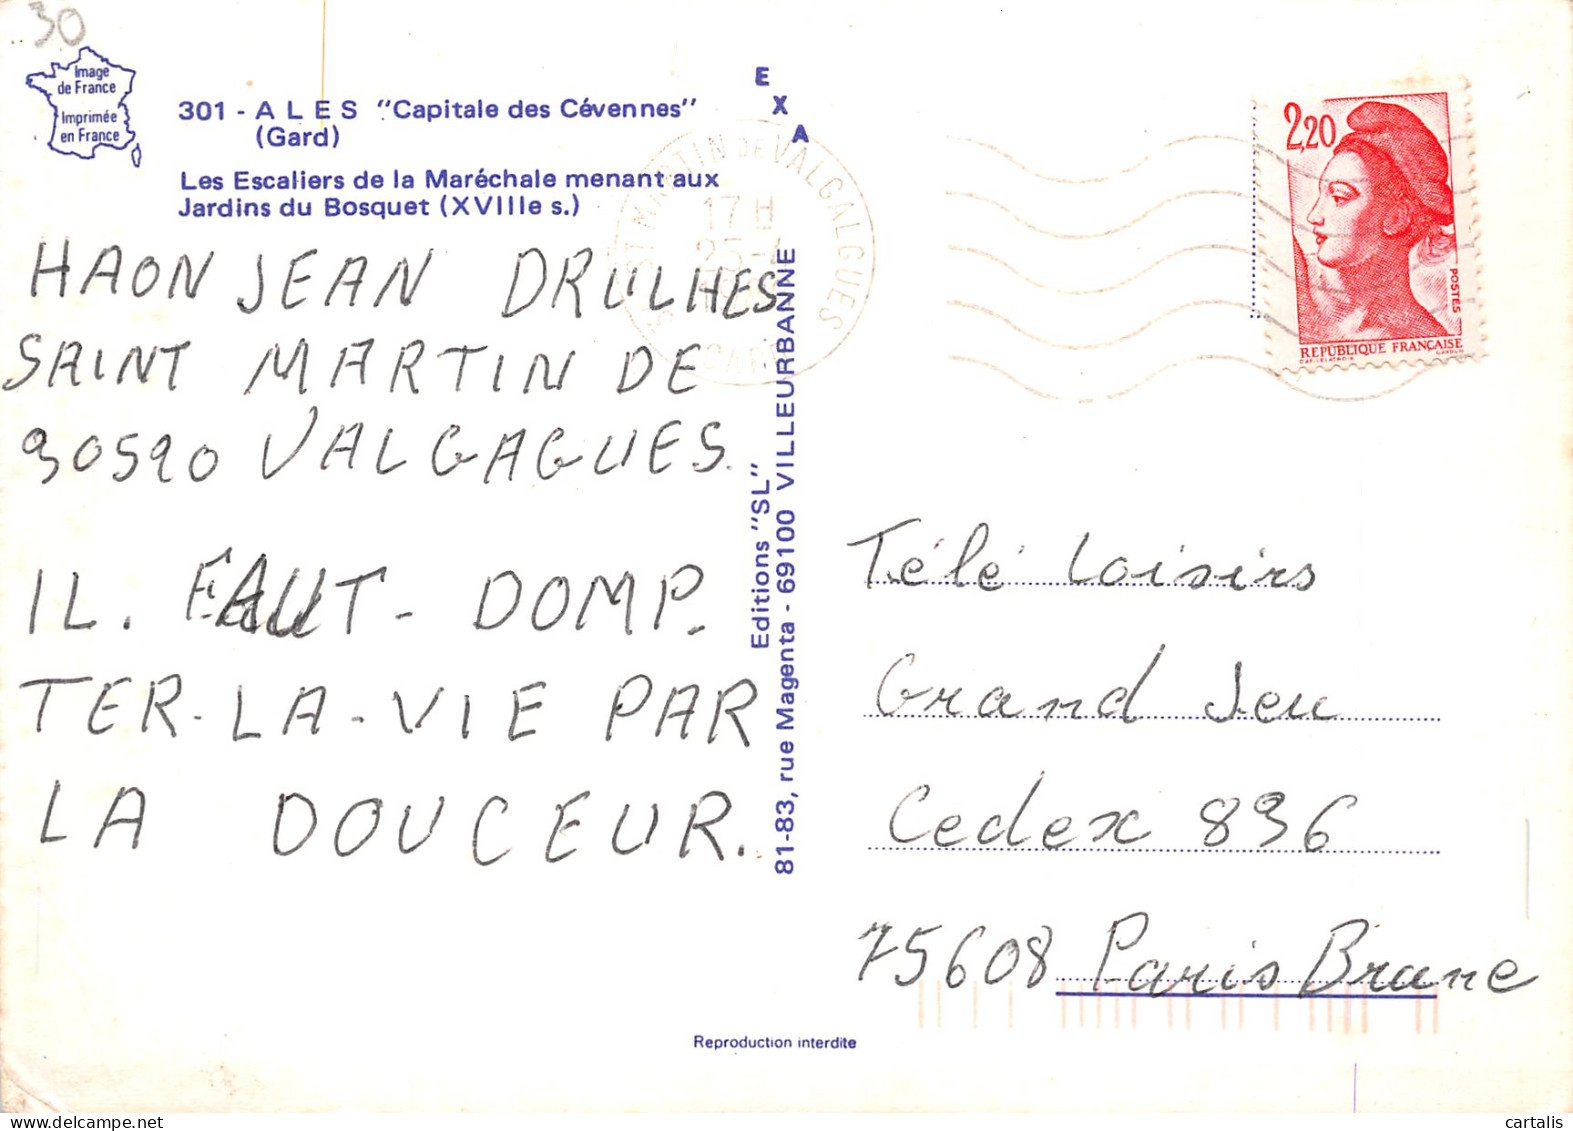 30
Image
de France
Imprimée
en France
301 - ALES "Capitale des Cévennes"
(Gard)
Les Escaliers de la Maréchale menant aux
Jardins du Bosquet (XVIIIe s.)
EXA
HAON JEAN DRULHES
SAINT MARTIN DE
30520 VALGAGUES.
IL. FAUT- DOMP-
TER-LA-VIE PAR
LA DOUCEUR.
Editions "SL"
81-83, rue Magenta - 69100 VILLEURBANNE
ST MARTIN DE VALGALGUES
17 H
25-
GARD
2,20
POSTES
REPUBLIQUE FRANÇAISE
Télé Loisirs
Grand Jeu
Cedex 896
75608 Paris Brune
Reproduction interdite
www.delcampe.net
cartalis